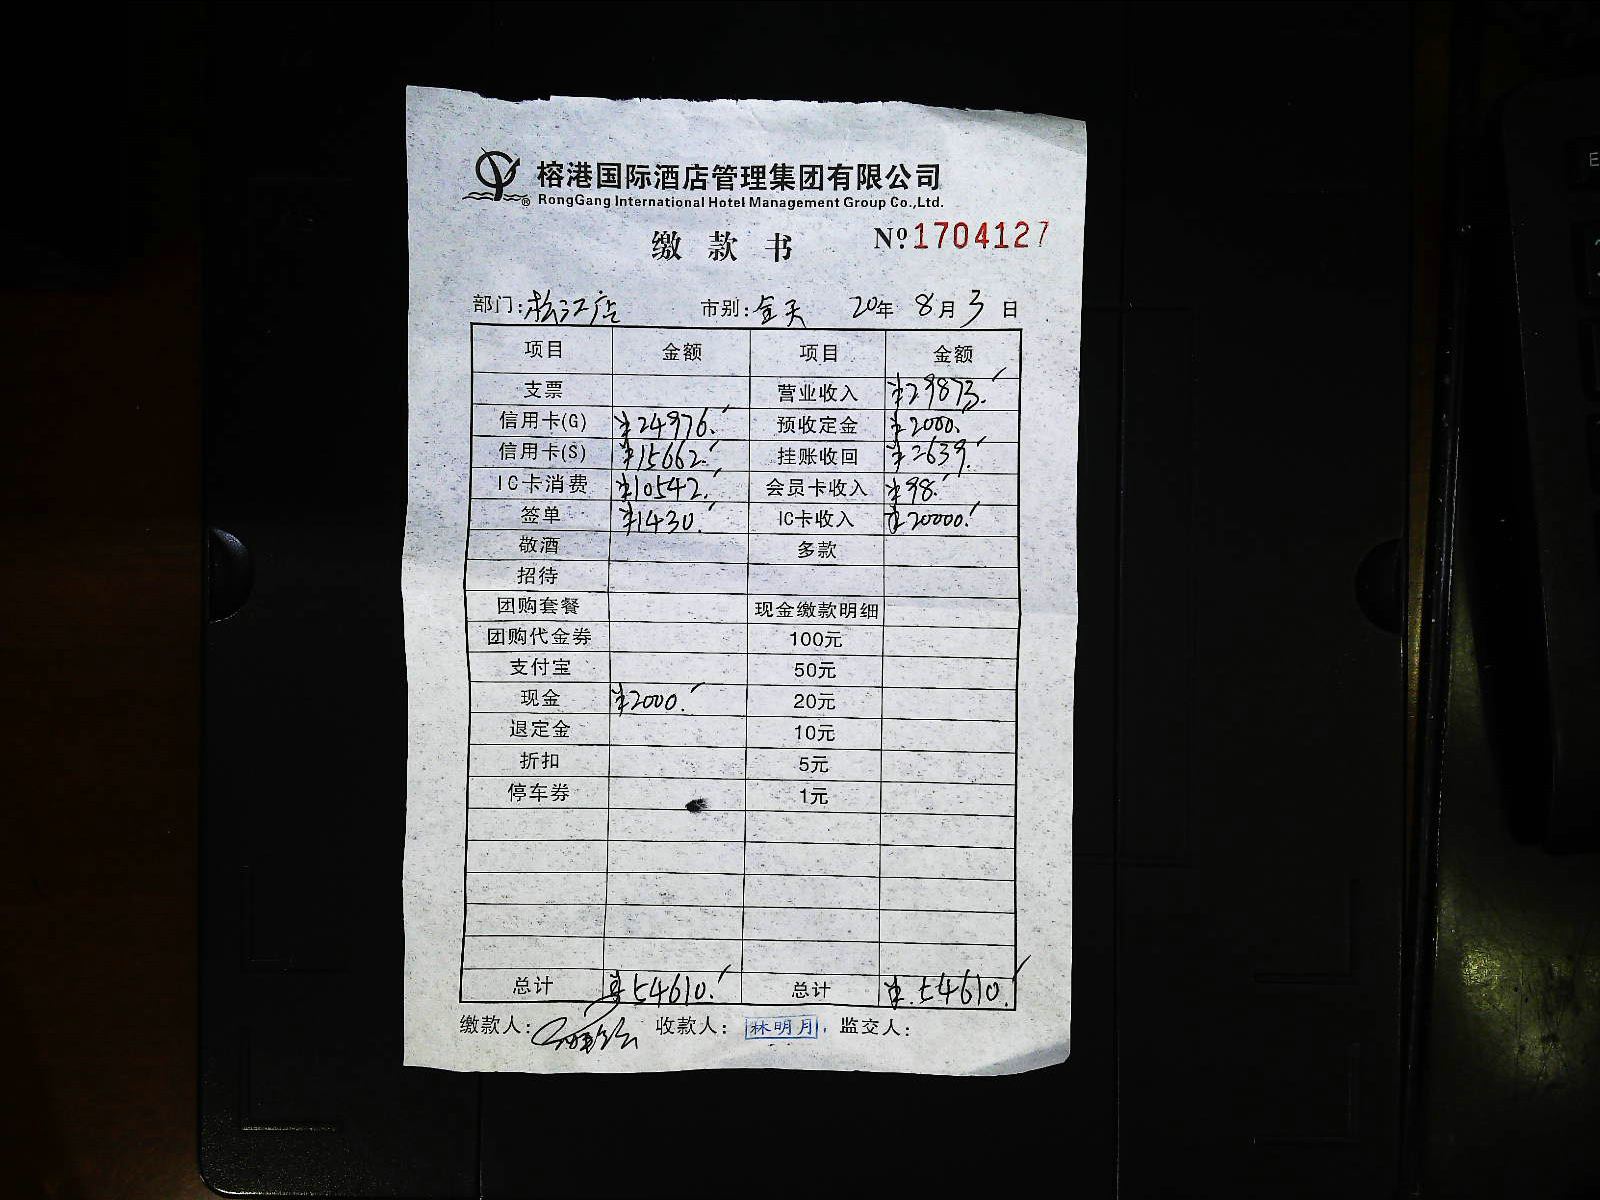 榕港国际酒店管理集团有限公司
RongGang International Hotel Management Group Co.,Ltd.
缴款书 Nº 1704127
部门:松江店 市别:全天 20年 8月3日
项目 金额 项目 金额
支票 营业收入 ¥29873.
信用卡(G) ¥24976. 预收定金 ¥2000.
信用卡(S) ¥15662. 挂账收回 ¥2639.
IC卡消费 ¥10542. 会员卡收入 ¥98.
签单 ¥1430. IC卡收入 ¥20000.
敬酒 多款
招待
团购套餐 现金缴款明细
团购代金券 100元
支付宝 50元
现金 ¥2000. 20元
退定金 10元
折扣 5元
停车券 1元
总计 ¥54610. 总计 ¥54610.
缴款人: 收款人: 林明月 监交人: